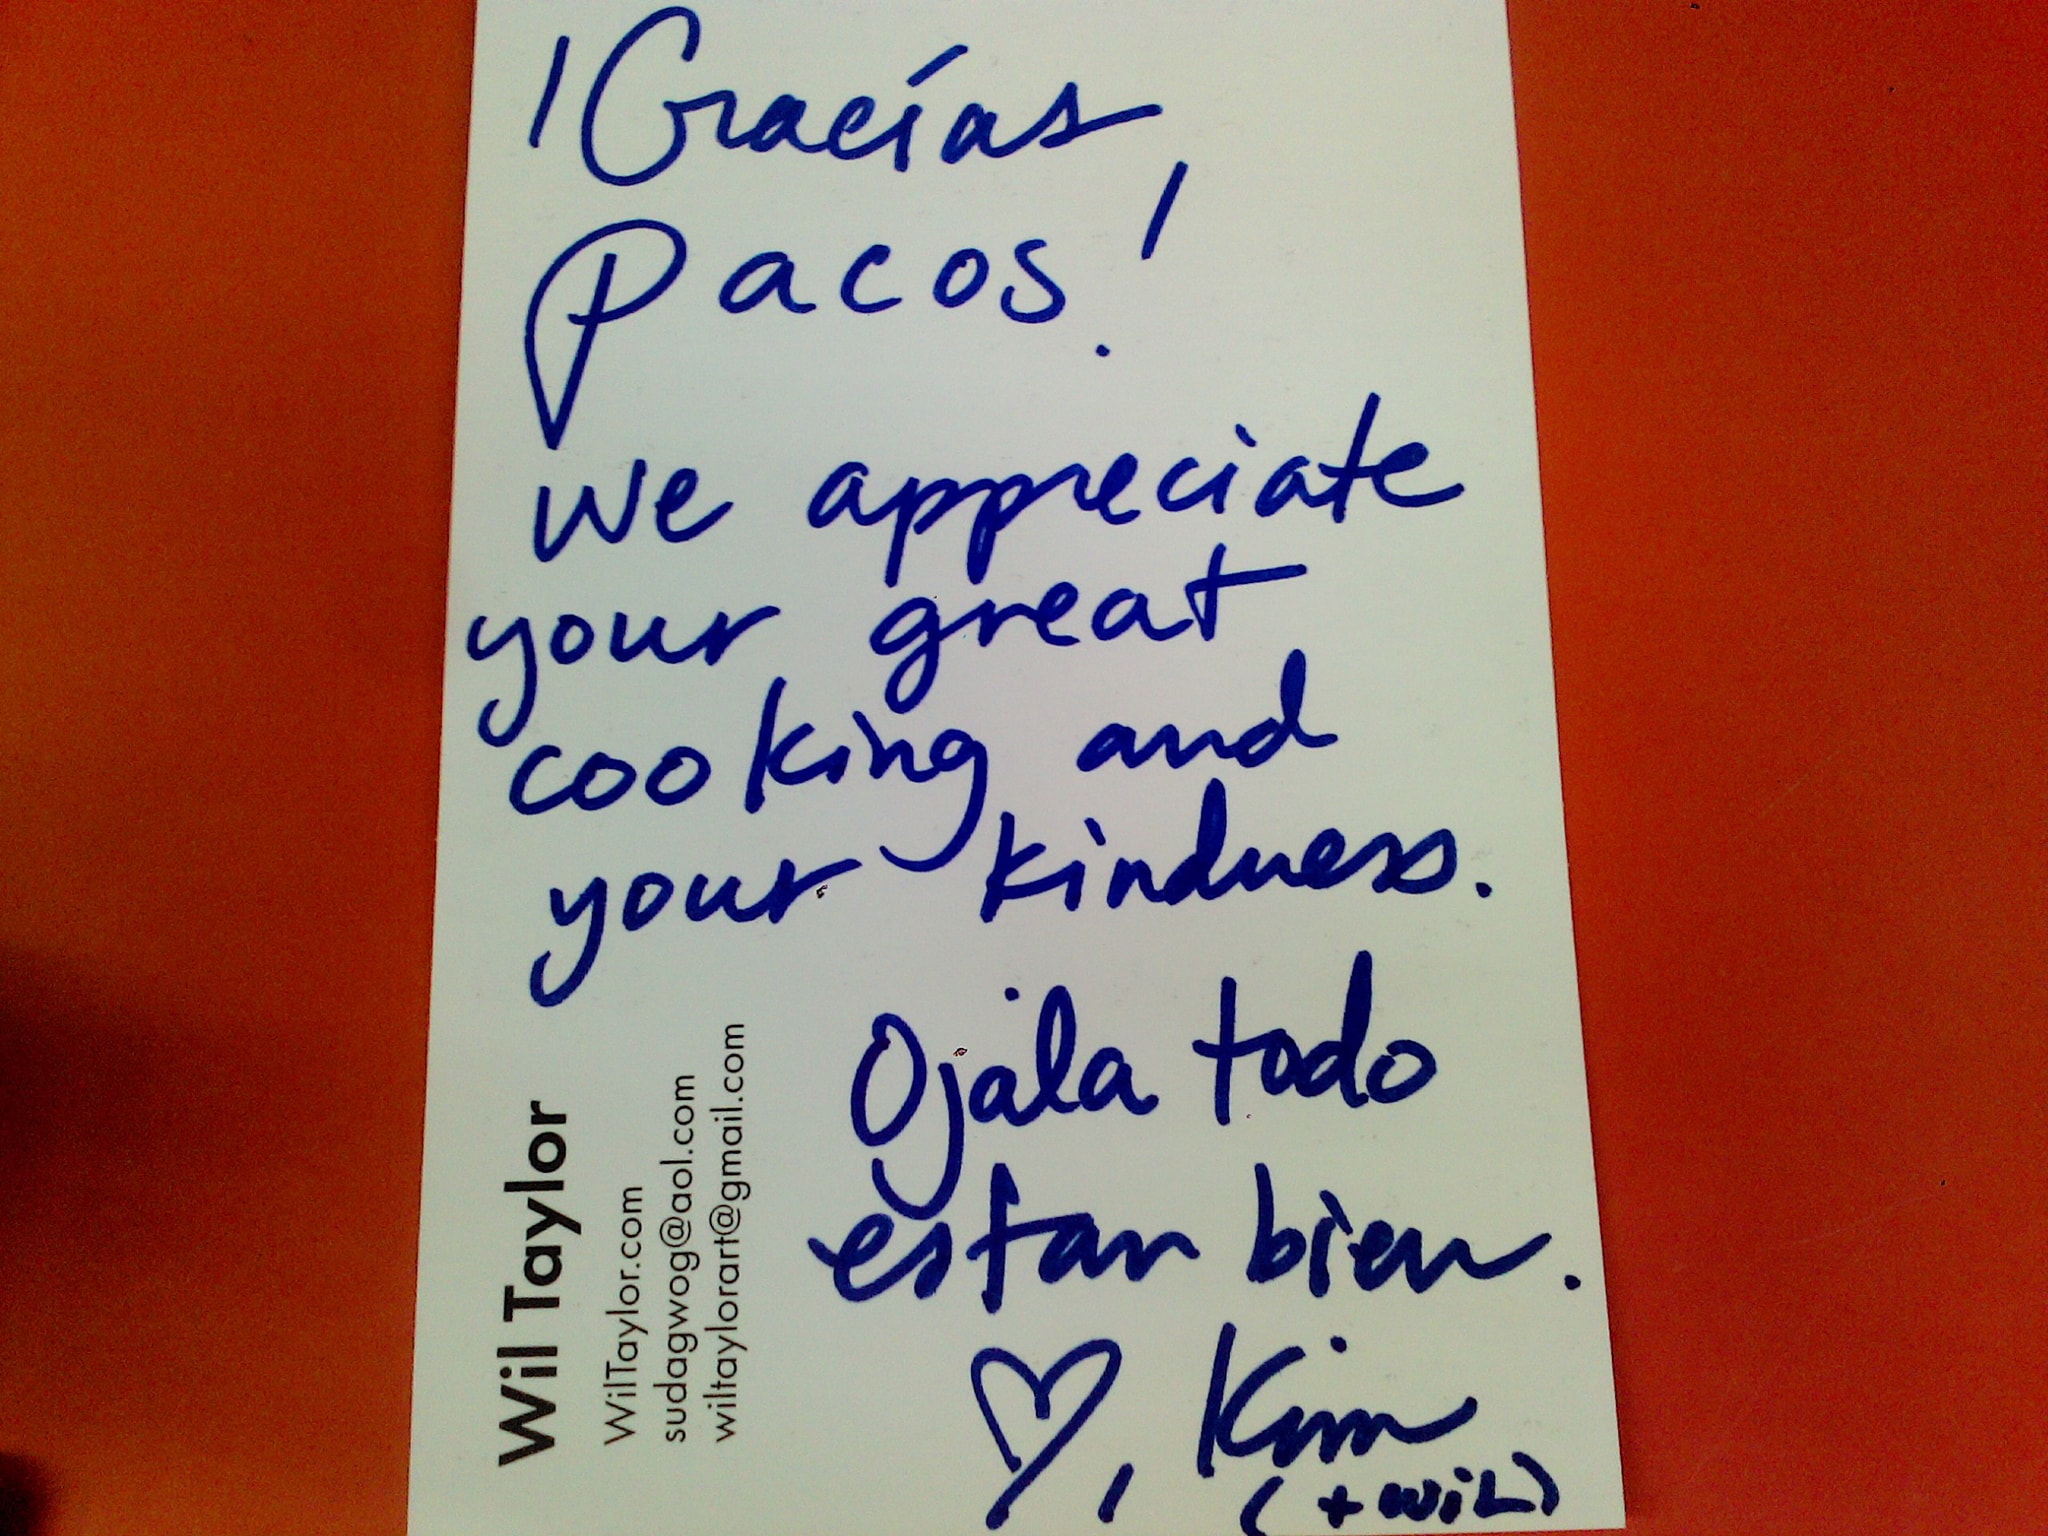 ¡Gracías
Pacos!
We appreciate
your great
cooking and
your kindness.
Ojala todo
estan bien.
♡, Kim
(+ WiL)
Wil Taylor
WilTaylor.com
sudagwog@aol.com
wiltaylorart@gmail.com